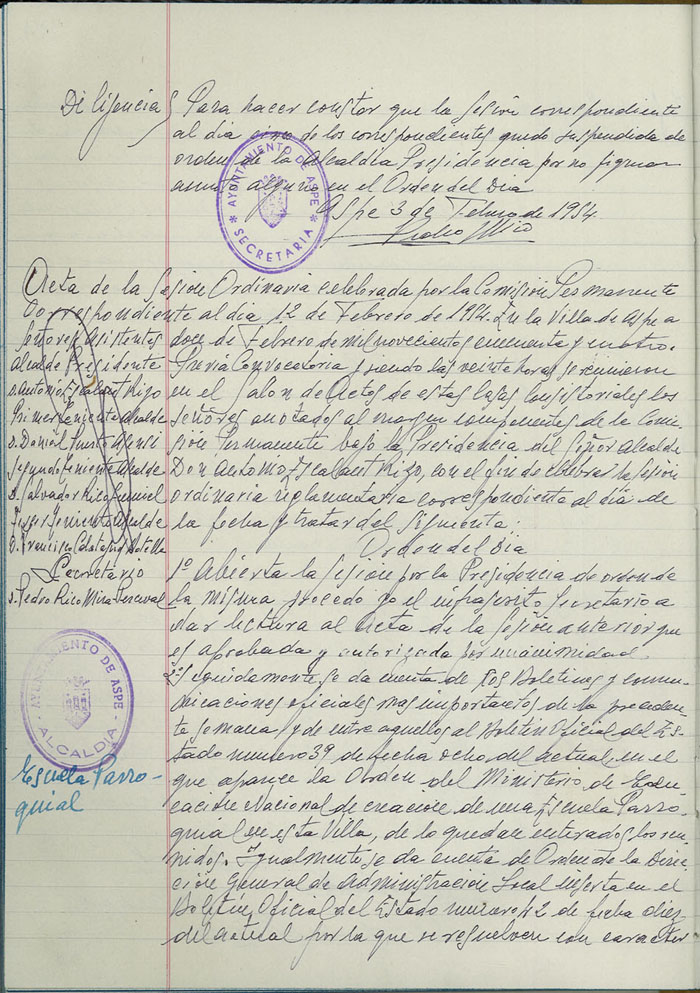 Diligencia} Para hacer constar que la sesión correspondiente
al dia cinco de los correspondientes quedó suspendida de
orden de la Alcaldía Presidencia por no figurar
asunto alguno en el Orden del Dia
Aspe 3 de Febrero de 1954.
Pedro Rico
AYUNTAMIENTO DE ASPE
* SECRETARIA *
Acta de la Sesión Ordinaria celebrada por la Comisión Permanente
Correspondiente al dia 12 de Febrero de 1954. En la Villa de Aspe a
Señores Asistentes
Alcalde Presidente
D. Antonio Alcalant Rizo
Primer Teniente Alcalde
D. Daniel Puerto
Segundo Teniente Alcalde
D. Salvador Rico
Tercer Teniente Alcalde
D. Francisco Calatayud Botella
Secretario
D. Pedro Rico Mira-Perceval
doce de Febrero de mil novecientos cincuenta y cuatro.
Previa Convocatoria y siendo las veinte horas se reunieron
en el Salon de Actos de estas Casas Consistoriales los
señores anotados al margen componentes de la Comi-
sión Permanente bajo la Presidencia del Señor Alcalde
Don Antonio Alcalant Rizo, con el fin de celebrar la sesión
ordinaria reglamentaria correspondiente al dia de
la fecha y tratar del siguiente:
Orden del Dia
1º Abierta la Sesión por la Presidencia de orden de
la misma procedo yo el infrascrito Secretario a
dar lectura al acta de la Sesión anterior que
es aprobada y autorizada por unanimidad.
2º Seguidamente se da cuenta de los Boletines y comu-
nicaciones oficiales mas importantes de la preceden-
te semana, y de entre aquellos al Boletin Oficial del Es-
tado numero 39 de fecha ocho del actual, en el
que aparece la Orden del Ministerio de Edu-
cación Nacional de creación de una Escuela Parro-
quial en esta Villa, de lo quedan enterados los reu-
nidos. Igualmente se da cuenta de Orden de la Direc-
ción General de Administración Local inserta en el
Boletin Oficial del Estado numero 42 de fecha diez
del actual por la que se resuelven con caracter
AYUNTAMIENTO DE ASPE
- ALCALDIA -
Escuela Parro-
quial